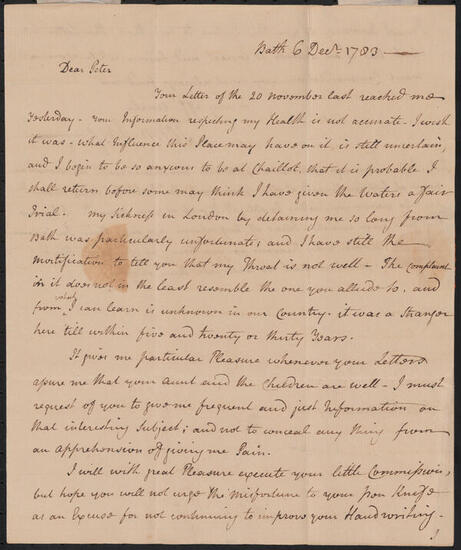 Bath 6 Decr. 1783 —
Dear Peter
Your Letter of the 20 november last reached me
Yesterday - your Information respecting my Health is not accurate - I wish
it was - what Influence this Place may have on it, is still uncertain,
and I begin to be so anxious to be at Chaillot, that it is probable I
shall return before some may think I have given the Waters a fair
Trial. my Sickness in London by detaining me so long from
Bath was particularly unfortunate; and I have still the
mortification to tell you that my Throat is not well - The complaint
in it does not in the least resemble the one you allude to, and
from what I can learn is unknown in our Country. it was a Stranger
here till within five and twenty or thirty Years.
It gives me particular Pleasure whenever your Letters
assure me that your Aunt and the Children are well - I must
request of you to give me frequent and just Information on
that interesting Subject; and not to conceal any thing from
an apprehension of giving me Pain.
I will with great Pleasure execute your little Commission,
but hope you will not urge the misfortune to your Pen Knife
as an Excuse for not continuing to improve your Handwriting.